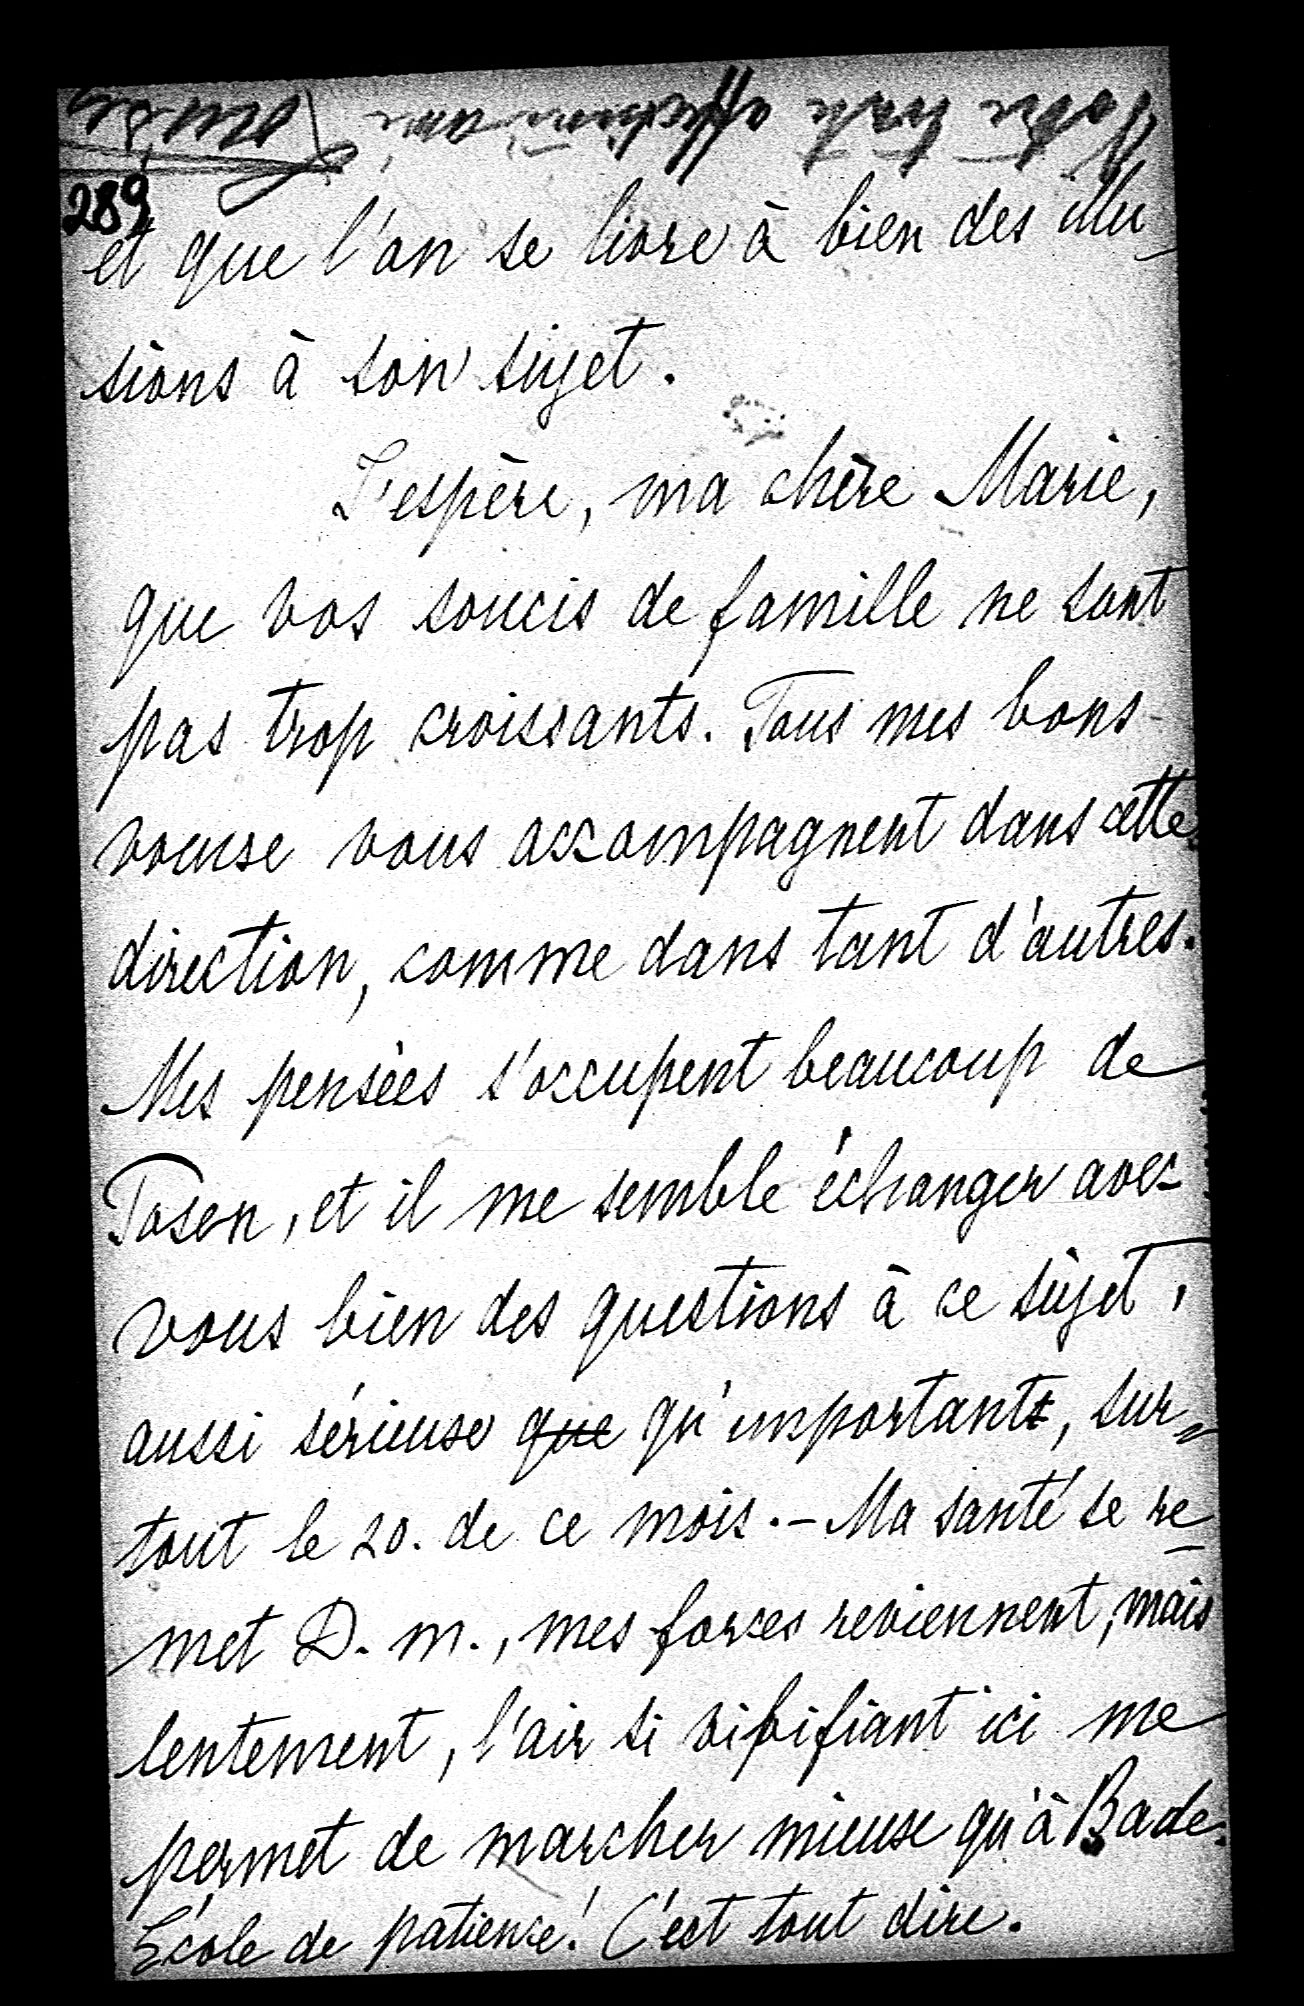 289
et que l'on se livre à bien des illu-
sions à son sujet.
J'espère, ma chère Marie,
que vos soucis de famille ne sont
pas trop croissants. Tous mes bons
voeuxe vous accompagnent dans cette
direction, comme dans tant d'autres.
Mes pensées s'occupent beaucoup de
Posen, et il me semble échanger avec
vous bien des questions à ce sujet,
aussi sérieuse que qu'important, sur=
tout le 20. de ce mois. - Ma santé se re-
met D. m., mes forces reviennent, mais
lentement, l'air si vivifiant ici me
permet de marcher mieuxe qu'à Bade.
École de patience! C'est tout dire.
Votre toute affectionnée amie
Louise